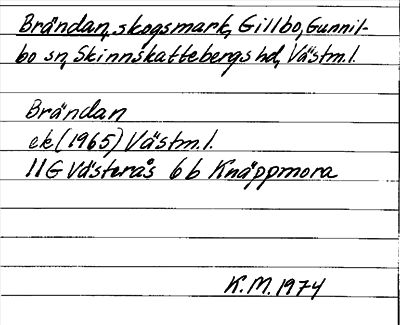 Brändan, skogsmark, Gillbo, Gunnil-
bo sn, Skinnskattebergs hd, Västm.l.
Brändan
ek (1965) Västm.l.
11G Västerås 6b Knäppmora
K.M. 1974